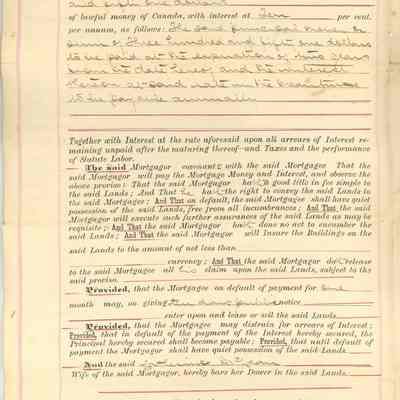 and
of lawful money of Canada, with interest at Ten per cent.
per annum, as follows: The said principal
sum of Three Hundred and fifty one dollars
to be paid at the expiration of two years
from the date hereof and the interest
thereon at said rate in the meantime
to be payable annually
Together with Interest at the rate aforesaid upon all arrears of Interest re-
maining unpaid after the maturing thereof—and Taxes and the performance
of Statute Labor.
The said Mortgagor covenants with the said Mortgagee That the
said Mortgagor will pay the Mortgage Money and Interest, and observe the
above proviso: That the said Mortgagor hath a good title in fee simple to
the said Lands; And That he hath the right to convey the said Lands to
the said Mortgagee; And That on default, the said Mortgagee shall have quiet
possession of the said Lands, free from all incumbrances; And That the said
Mortgagor will execute such further assurances of the said Lands as may be
requisite; And That the said Mortgagor hath done no act to encumber the
said Lands; And That the said Mortgagor will Insure the Buildings on the
said Lands to the amount of not less than
currency; And That the said Mortgagor doth release
to the said Mortgagee all his claim upon the said Lands, subject to the
said proviso.
Provided, that the Mortgagee on default of payment for one
month may, on giving ten days notice
enter upon and lease or sell the said Lands.
Provided, that the Mortgagee may distrain for arrears of Interest;
Provided, that in default of the payment of the Interest hereby secured, the
Principal hereby secured shall become payable; Provided, that until default of
payment the Mortgagor shall have quiet possession of the said Lands.
And the said
Wife of the said Mortgagor, hereby bars her Dower in the said Lands.